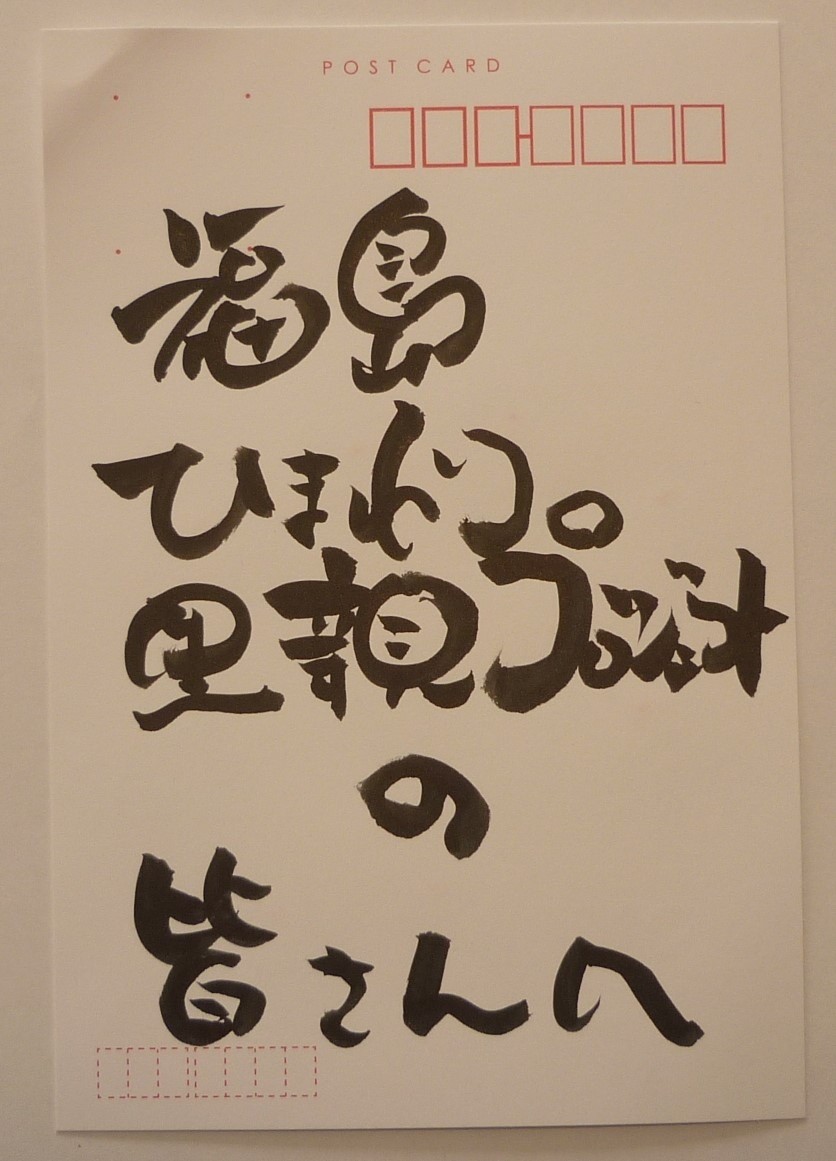 POST CARD
福島
ひまわり
里親プロジェクト
の
皆さんへ